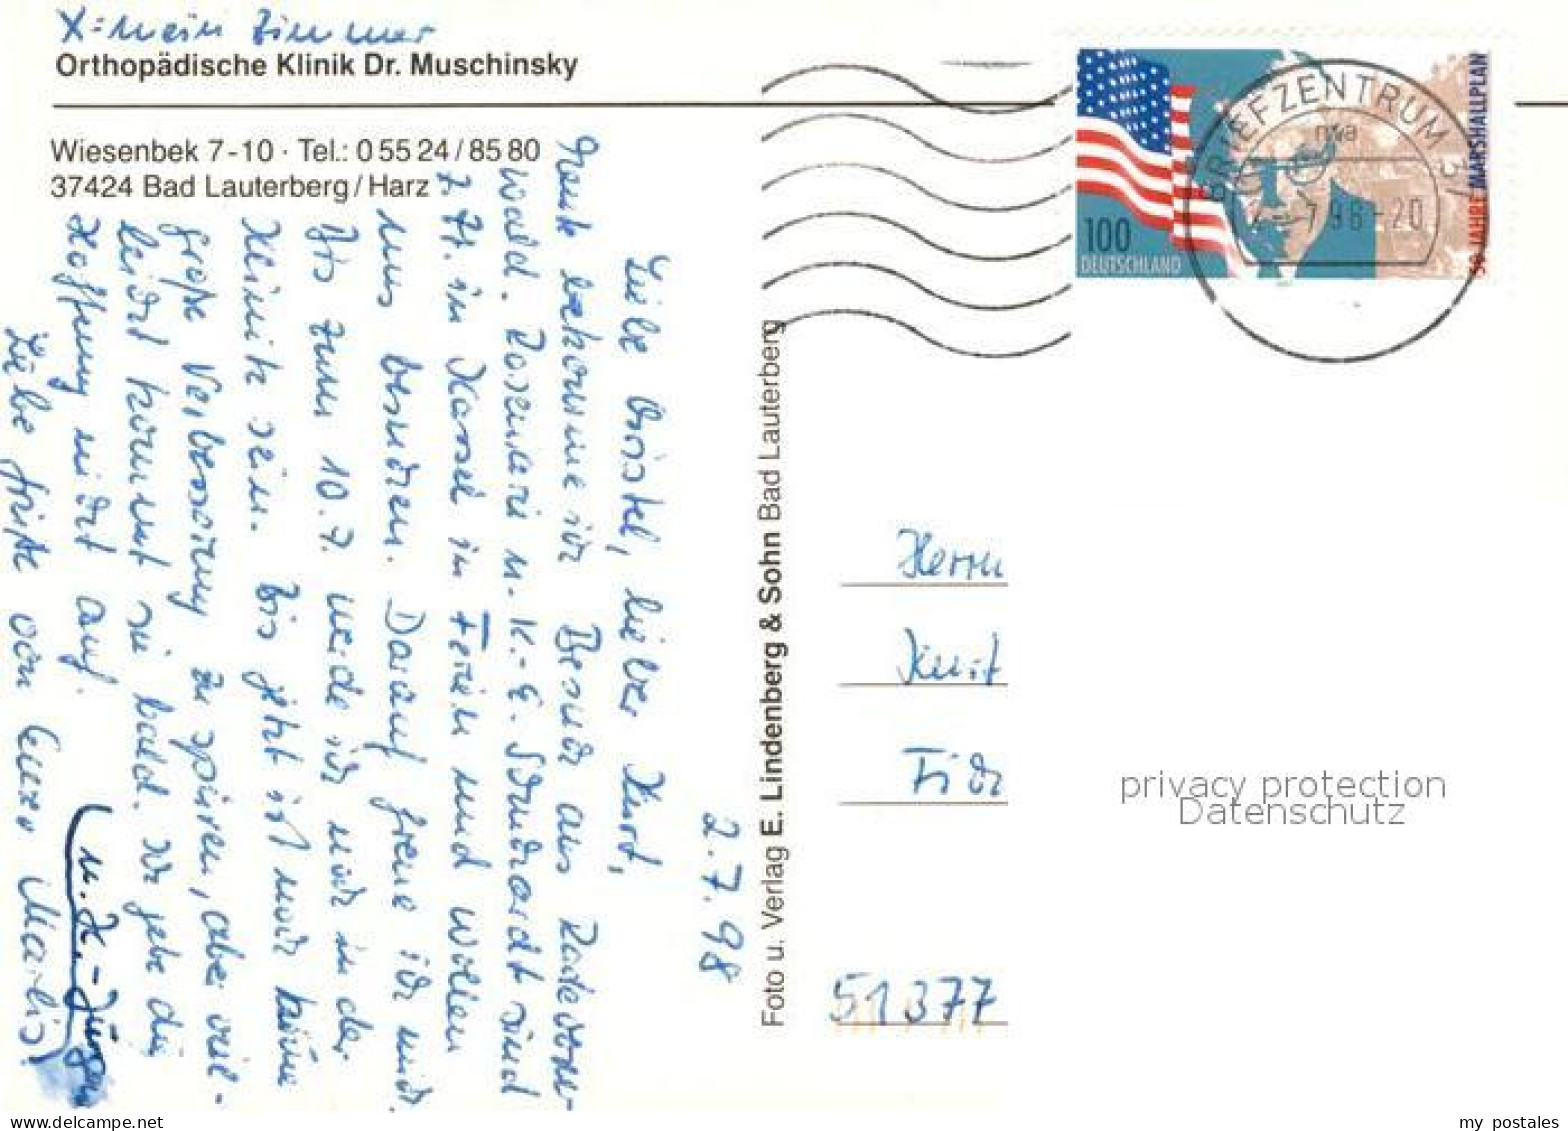 X = mein Zimmer
Orthopädische Klinik Dr. Muschinsky
Wiesenbek 7-10 · Tel.: 0 55 24 / 85 80
37424 Bad Lauterberg / Harz
2.7.98
Liebe Christel, lieber Kurt,
Heute bekomme ich Besuch aus Radevorm-
wald. Rosemarie u. K.-E. Schuchardt sind
z. Zt. in Kassel in Ferien und wollen
uns besuchen. Darauf freue ich mich.
Bis zum 10.7. werde ich noch in der
Klinik sein. Bis jetzt ist noch keine
große Verbesserung zu spüren, aber viel-
leicht kommt sie bald. Ich gebe die
Hoffnung nicht auf.
Liebe Grüße von Eurer Marlis
(u. K.-Jürgen)
Foto u. Verlag E. Lindenberg & Sohn Bad Lauterberg
100
DEUTSCHLAND
50 JAHRE MARSHALLPLAN
BRIEFZENTRUM 37
Herrn
Kurt
51377
privacy protection
Datenschutz
my postales